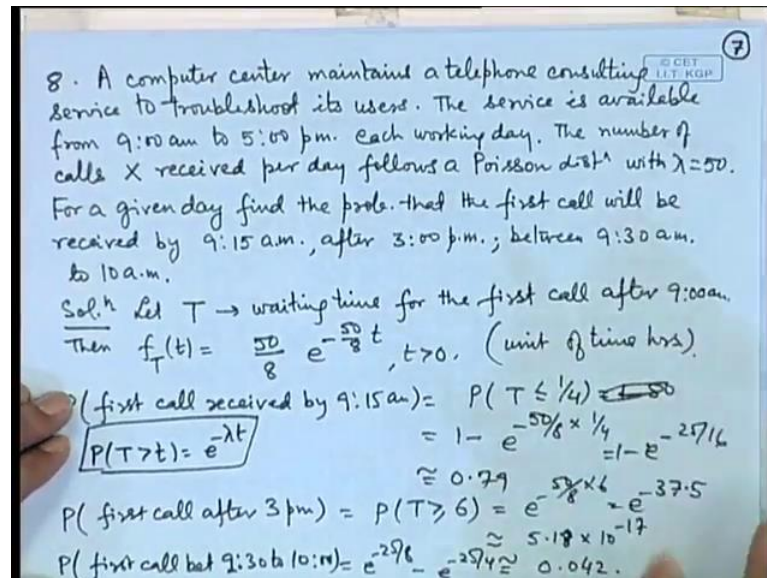 7
© CET
I.I.T. KGP
8. A computer center maintains a telephone consulting
service to troubleshoot its users. The service is available
from 9:00 am to 5:00 pm. each working day. The number of
calls X received per day follows a Poisson distⁿ with λ=50.
For a given day find the prob. that the first call will be
received by 9:15 a.m., after 3:00 p.m.; between 9:30 am.
to 10 a.m.
Sol.ⁿ Let T → waiting time for the first call after 9:00 am.
Then f_T(t) = 50/8 e^{-50/8 t}, t>0. (unit of time hrs)
P(first call received by 9:15 am) = P(T ≤ 1/4)
P(T>t) = e^{-λt}
= 1 - e^{-50/8 × 1/4} = 1 - e^{-25/16}
≅ 0.79
P(first call after 3 pm) = P(T ≥ 6) = e^{-50/8 × 6} = e^{-37.5}
≈ 5.18 × 10^{-17}
P(first call bet 9:30 to 10:00) = e^{-25/8} - e^{-25/4} ≅ 0.042.